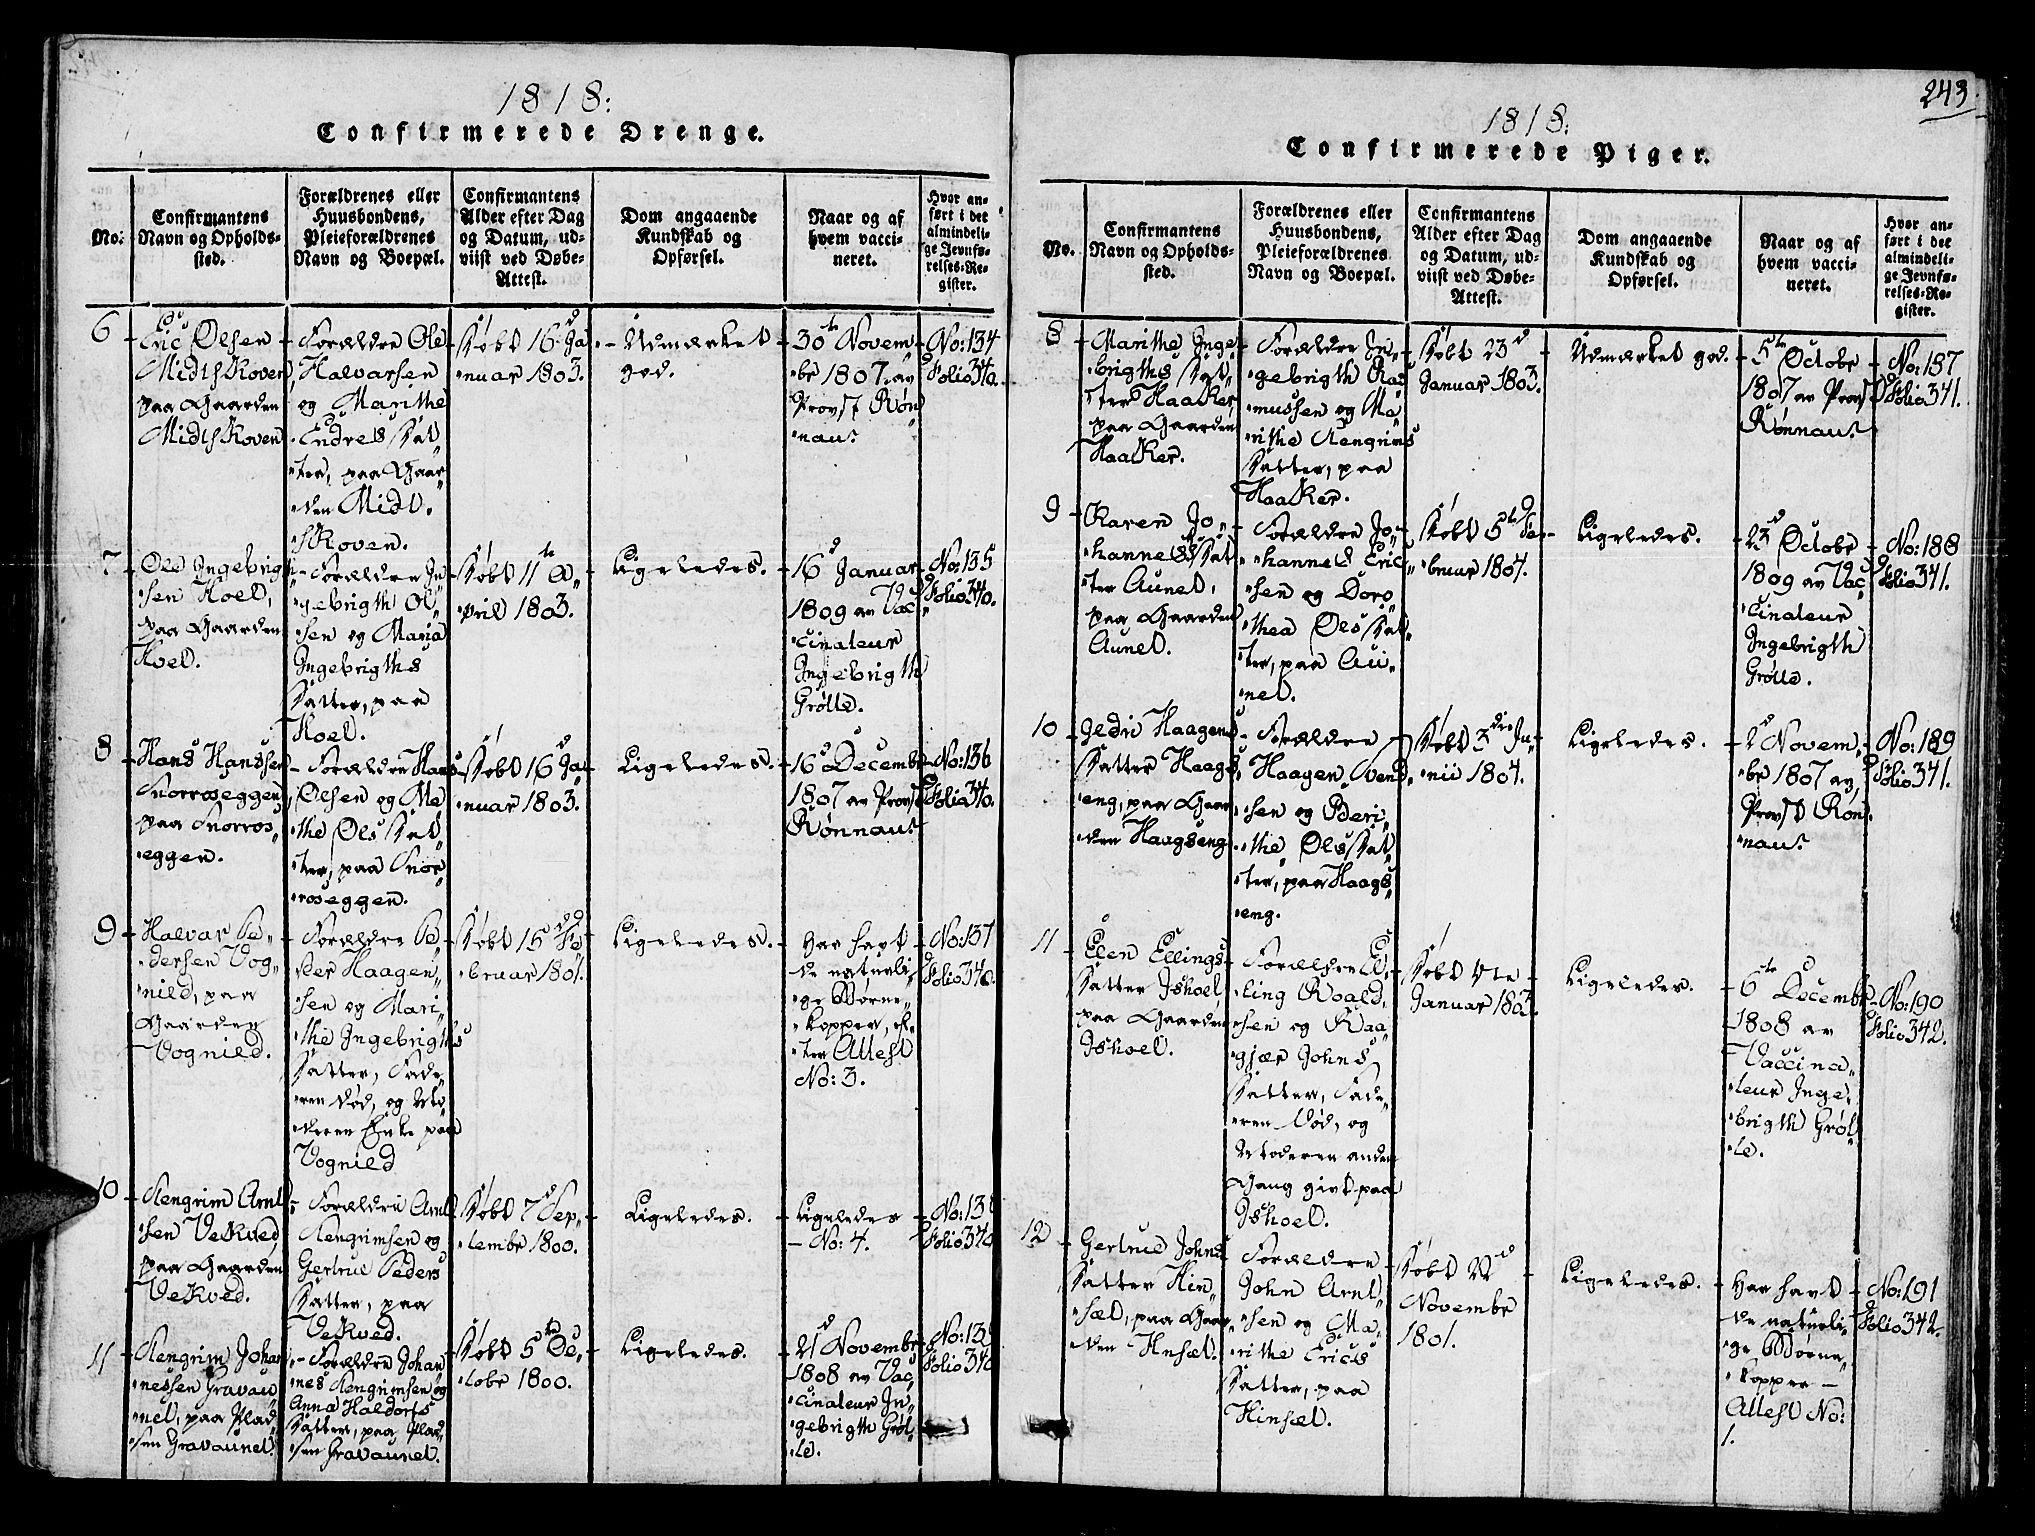 1818:
Confirmerede Drenge.
No.
Confirmantens
Navn og Opholds-
sted.
Forældrenes eller
Huusbondens,
Pleieforældrenes
Navn og Boepæl.
Confirmantens
Alder efter Dag
og Datum, ud-
viist ved Døbe-
Attest.
Dom angaaende
Kundskab og
Opførsel.
Naar og af
hvem vacci-
neret.
Hvor an-
ført i det
almindeli-
ge Jevnfø-
relses-Re-
gister.
6
Eric Olsen
Midtskoven
paa Gaarden
Midtskoven
Forældre Ole
Halvarsen
og Marithe
Endres Dat
ter, paa Gaar
den Midt-
skoven.
Døbt 16d Ja
nuar 1803.
Udmærket
god.
30te Novem
br 1807. av
Provst Røn
nau.
No: 134
Folio 340.
7
Ole Ingebrigt
sen Hoel,
paa Gaarden
Hoel.
Forældre In
gebrigth Ol
sen og Maria
Ingebrigths
Datter, paa
Hoel.
Døbt 11te A
pril 1803.
Ligeledes.
16d Januar
1809 av Vac
cinateur
Ingebrigth
Grøtte.
No: 135
Folio 340.
8
Hans Hanssen
Snorroseggen
paa Snorros
eggen.
Forældre Hans
Olsen og Ma
the Ols Dat
ter, paa Snor
roseggen.
Døbt 16d Ja
nuar 1803.
Ligeledes.
16d Decembr
1807 av Provst
Rønnau.
No: 136
Folio 340.
9
Halvar Pe
dersen Vog
nild, paa
Gaarden
Vognild.
Forældre Pe
der Haagen
sen og Mari
the Ingebrigths
Datter, Fade
ren død, og Mo
deren Enke paa
Vognild
Døbt 15d Fe
bruar 1801.
Ligeledes.
Har havt
de naturli
ge Børne
kopper, ef
ter Attest
No: 3.
No: 137
Folio 340.
10
Rengrim Arnt
sen Vekved
paa Gaarden
Vekved.
Forældre Arnt
Rengrimsen og
Gertrue Peders
Datter, paa
Vekved.
Døbt 7d Sep
tembr 1800.
Ligeledes.
Ligeledes
No: 4.
No: 138
Folio 340
11
Rengrim Johan
nessen Gravau
net, paa Plad
sen Gravaunet.
Forældre Johan
nes Rengrimsen og
Anna Haldors
Datter, paa Plad
sen Gravaunet.
Døbt 5te Oc
tobr 1800.
Ligeledes.
21d Novembr
1808 av Vac
cinateur In
gebrigth Grøt
te.
No: 139
Folio 340
243.
1818:
Confirmerede Piger.
No.
Confirmantens
Navn og Opholds-
sted.
Forældrenes eller
Huusbondens,
Pleieforældrenes
Navn og Boepæl.
Confirmantens
Alder efter Dag
og Datum, ud-
viist ved Døbe-
Attest.
Dom angaaende
Kundskab og
Opførsel.
Naar og af
hvem vacci-
neret.
Hvor an-
ført i det
almindeli-
ge Jevnfø-
relses-Re-
gister.
8
Marithe Inge
brigths Dat
ter Haaker
paa Gaarden
Haaker.
Forældre In
gebrigth Ras
mussen og Ma
rithe Rengrims
Datter, paa
Haaker.
Døbt 23d
Januar 1803.
Udmærket god.
5te Octobr
1807 av Provst
Rønnau.
No: 187
Folio 341.
9
Karen Jo
hannes Dat
ter Aunet,
paa Gaarden
Aunet.
Forældre Jo
hannes Eric
sen og Doro
thea Ols Dat
ter, paa Au
net.
Døbt 5te Fe
bruar 1804.
Ligeledes.
23d Octobr
1809 av Vac
cinateur
Ingebrigth
Grøtte.
No: 188
Folio 341.
10
Gedri Haagens
Datter Haags
eng, paa Gaar
den Haagseng
Forældre
Haagen Svend
sen og Beri
the Ols Dat
ter, paa Haags
eng.
Døbt 3die Ju
nii 1804.
Ligeledes.
2d Novem
br 1807 av
Provst Røn
nau.
No: 189
Folio 341.
11
Elen Ellings
Datter Ishoel
paa Gaarden
Ishoel.
Forældre El
ling Roald
sen og Raa
gjær Johns
Datter, Fade
ren død, og
Moderen anden
Gang givt paa
Ishoel.
Døbt
Januar 1803.
Ligeledes.
6te Decembr
1808 av
Vaccina
teur Inge
brigth Grøt
te.
No: 190
Folio 342.
12
Gertrue Johns
Datter Hin
sæt, paa Gaar
den Hinsæt.
Forældre
John Arnt
sen og Ma
rithe Erics
Datter, paa
Hinsæt.
Døbt 22d
Novembr
1801.
Ligeledes.
Har havt
de naturli
ge Børne
kopper
Attest No:
1.
No: 191
Folio 342.